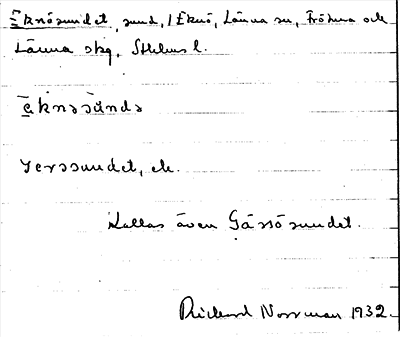 Eknösundet, sund, / Eknö, Länna sn, Frötuna och
Länna skg, Sthlms l.
ęknɔsúndə
Jerssundet, ek.
Kallas även Gässösundet.
Rickard Norrman 1932.